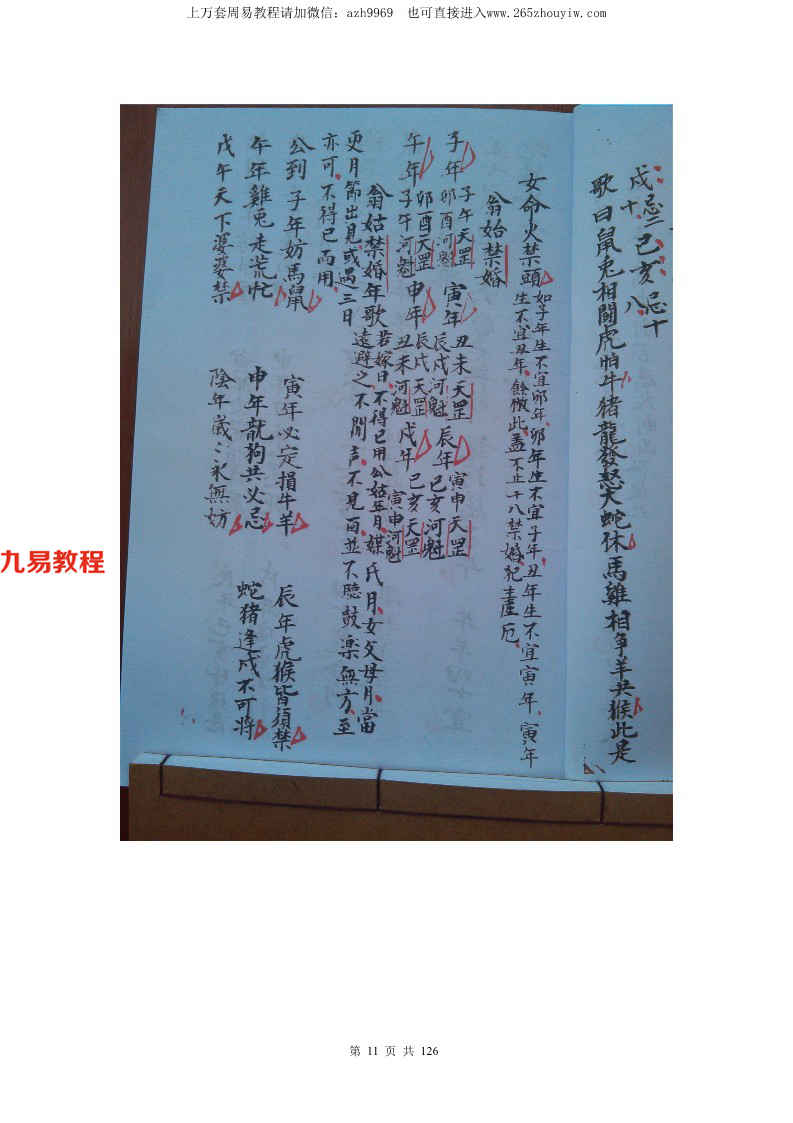 上万套周易教程请加微信：azh9969 也可直接进入www.265zhouyiw.com
戌忌二 己亥忌十
十 八
歌曰鼠兔相鬪虎怕牛 猪龍發怒犬蛇休 馬雞相爭羊共猴此是
女命火禁頭 如子年生不宜卯年、卯年生不宜子年、丑年生不宜寅年、寅年
生不宜丑年、餘倣此、盖不止十八禁婚、犯主產厄、
翁姑禁婚
子年 子午天罡 卯酉河魁 寅年 丑未天罡 辰戌河魁 辰年 寅申天罡 己亥河魁
午年 卯酉天罡 子午河魁 申年 辰戌天罡 丑未河魁 戌年 己亥天罡 寅申河魁
翁姑禁婚年歌 若嫁日、不得已用公姑年月、媒氏月、女父母月、當
遠避之不聞声、不見面、並不聴鼓楽無方、至
更月節出見、或遇三日
亦可、不得已而用、
公到子年妨馬鼠 寅年必定損牛羊 辰年虎猴皆須禁
午年雞兎走荒忙 申年龍狗共必忌 蛇猪逢戌不可将
戊午天下選婆禁 陰年歲々永無妨
九易教程
第 11 页 共 126